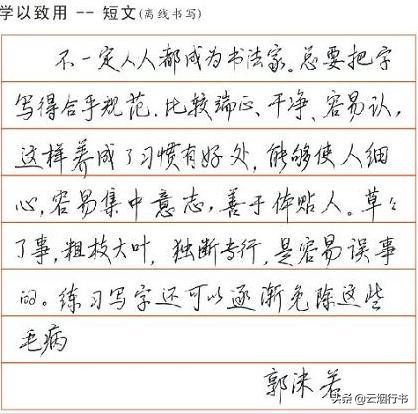 学以致用 -- 短文(离线书写)
不一定人人都成为书法家。总要把字
写得合乎规范，比较端正、干净、容易认，
这样养成了习惯有好处，能够使人细
心，容易集中意志，善于体贴人。草々
了事，粗枝大叶，独断专行，是容易误事
的。练习写字还可以逐渐免除这些
毛病
郭沫若
头条@云烟行书